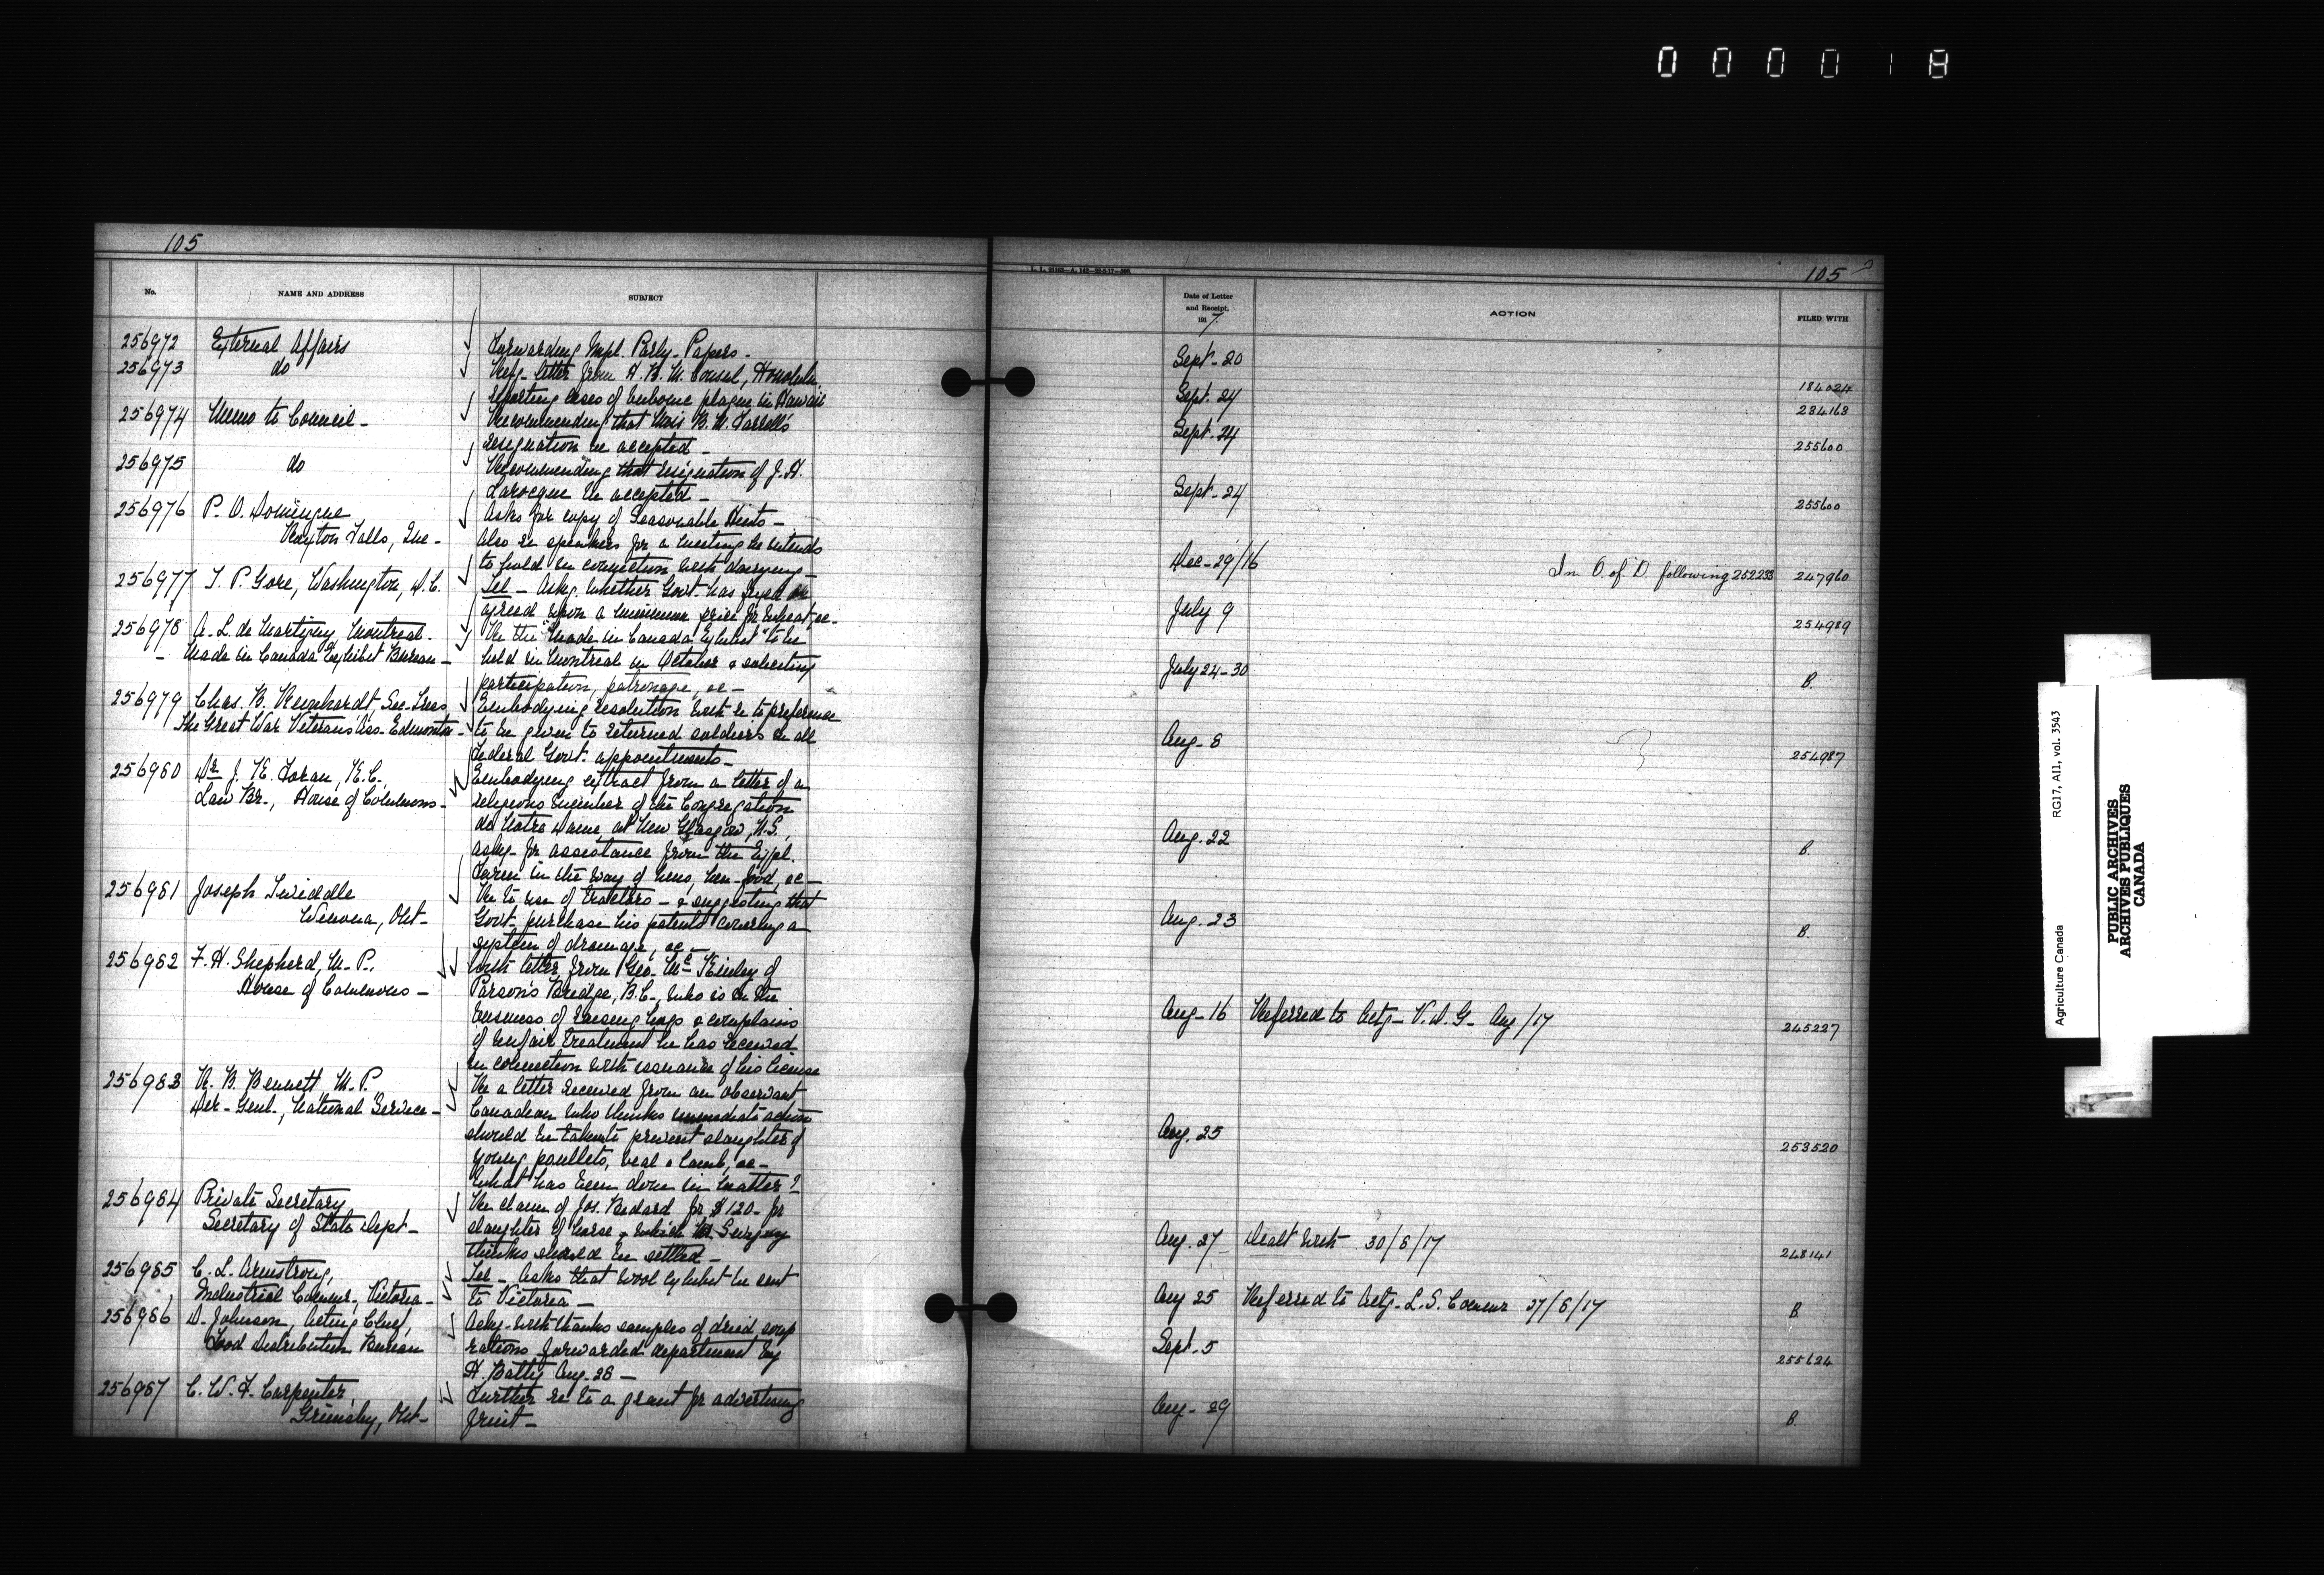 000018
105
No.
NAME AND ADDRESS
SUBJECT
256972 External Affairs Forwarding Impl. Parly. Papers.
256973 do Refg. letter from H. B. M. Consul, Honolulu,
reporting cases of bubonic plague in Hawaii
256974 Memo to Council - Recommending that Miss B. M. Farrell's
resignation be accepted -
256975 do Recommending that resignation of J. A.
Larocque be accepted -
256976 P. O. Domingue Asks for copy of Seasonable Hints -
Roxton Falls, Que - Also re speakers for a meeting he intends
to hold in connection with dairying -
256977 T. P. Gore, Washington, D.C. Tel - Askg. whether Govt. has fixed or
agreed upon a minimum price for wheat, &c -
256978 A. L. de Martigny, Montreal. Re the "Made in Canada Exhibit" to be
- Made in Canada Exhibit Bureau - held in Montreal in October & soliciting
participation, patronage, &c -
256979 Chas. B. Reinhardt, Sec-Treas Embodying resolution with re to preference
The Great War Veterans' Ass. Edmonton - to be given to returned soldiers in all
Federal Govt. appointments -
256980 Dr J. K. Foran, K.C., Embodying extract from a letter of a
Law Br., House of Commons - religious member of the Congregation
de Notre Dame, at New Glasgow, N.S.,
askg. for assistance from the Exptl.
Farm in the way of hens, hen-food, &c -
256981 Joseph Twiddle Re to use of tractors - & suggesting that
Winona, Ont - Govt. purchase his patents covering a
system of drainage, &c -
256982 F. H. Shepherd, M. P., With letter from Geo. McKinley of
House of Commons - Parson's Bridge, B.C., who is in the
business of raising hogs & complains
of unfair treatment he has received
in connection with issuance of his license
256983 R. B. Bennett, M. P. Re a letter received from an observant
Dir - Genl., National Service - Canadian who thinks immediate action
should be taken to prevent slaughter of
young poullets, veal & lamb, &c -
What has been done in matter?
256984 Private Secretary Re claim of Jos. Bedard for $120 - for
Secretary of State Dept - slaughter of horse, which Mr. Sevigny
thinks should be settled -
256985 C. L. Armstrong, Tel - Asks that wool exhibit be sent
Industrial Commr, Victoria - to Victoria -
256986 D. Johnson, Acting Chief, Ackg. with thanks samples of dried soup
Food Distribution Bureau rations forwarded department by
H. Batty Aug. 28 -
256987 C. W. F. Carpenter, Further re to a grant for advertising
Grimsby, Ont - fruit -
105
Date of Letter
and Receipt,
1917
ACTION
FILED WITH
Sept - 20 184024
Sept. 24 234163
Sept. 24 255600
Sept - 24 255600
Dec - 29/16 In O. of D. following 252233 247960
July 9 254989
July 24 - 30 B.
Aug - 8 254987
Aug. 22 B.
Aug. 23 B.
Aug - 16 Referred to Actg - V. D. G - Aug/17 245227
Aug. 25 253520
Aug. 27 Dealt with 30/8/17 248141
Aug 25 Referred to Actg - L. S. Commr 27/8/17 B
Sept. 5 255624
Aug - 29 B.
Agriculture Canada RG17, AII, vol. 3543
PUBLIC ARCHIVES
ARCHIVES PUBLIQUES
CANADA